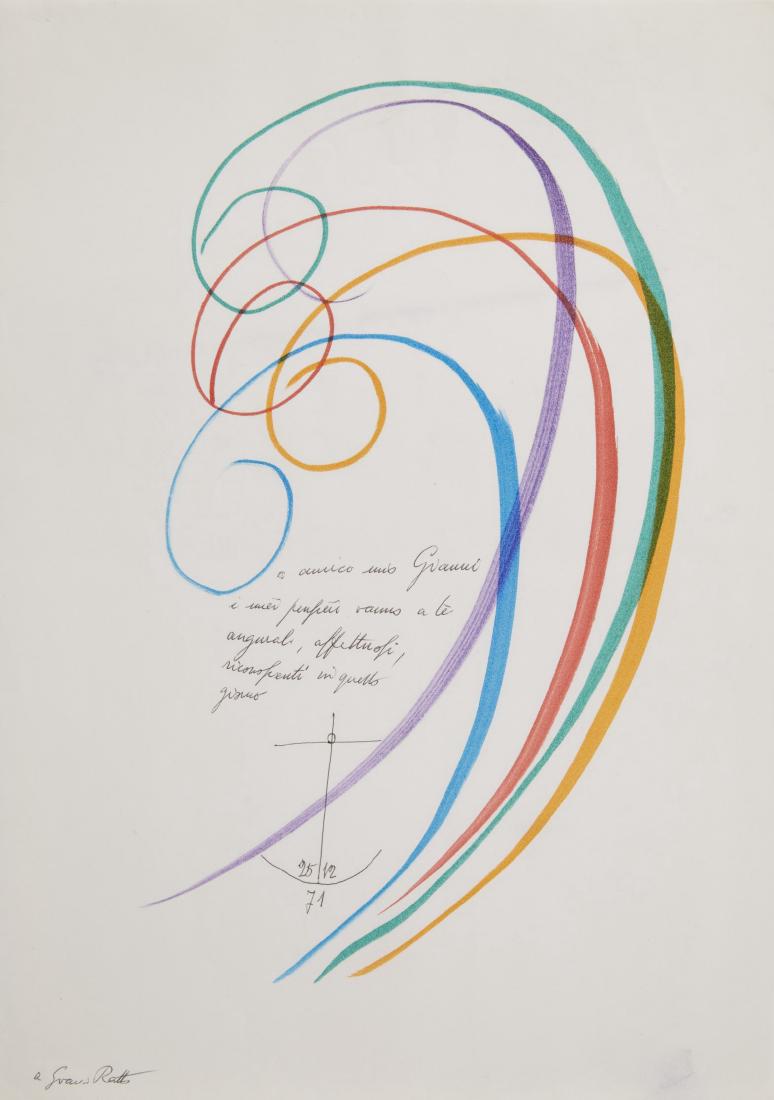 a amico mio Gianni
i miei pensieri vanno a te
augurali, affettuosi,
riconoscenti in questo
giorno
25 12
71
a Gianni Ratto